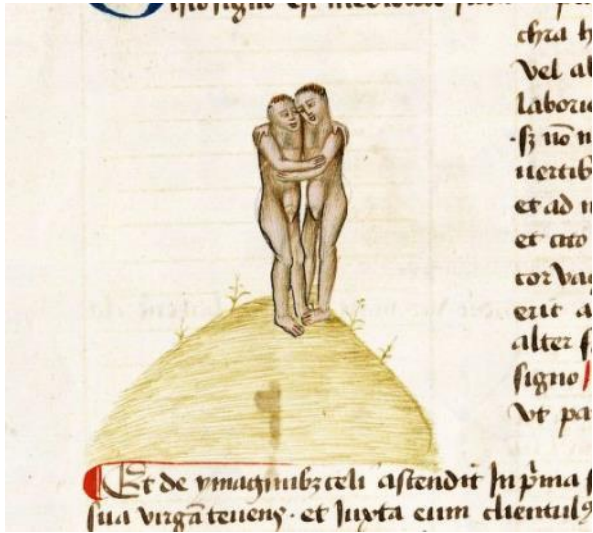 chra h
vel ab
laborio
·sz nō n
uertib
et ad n
et cito
cor vag
erit a
alter s
signo
vt pa
Et de ymaginibz celi ascendit In p̄ma f
sua virgā tenens · et Juxta eum clientulꝯ